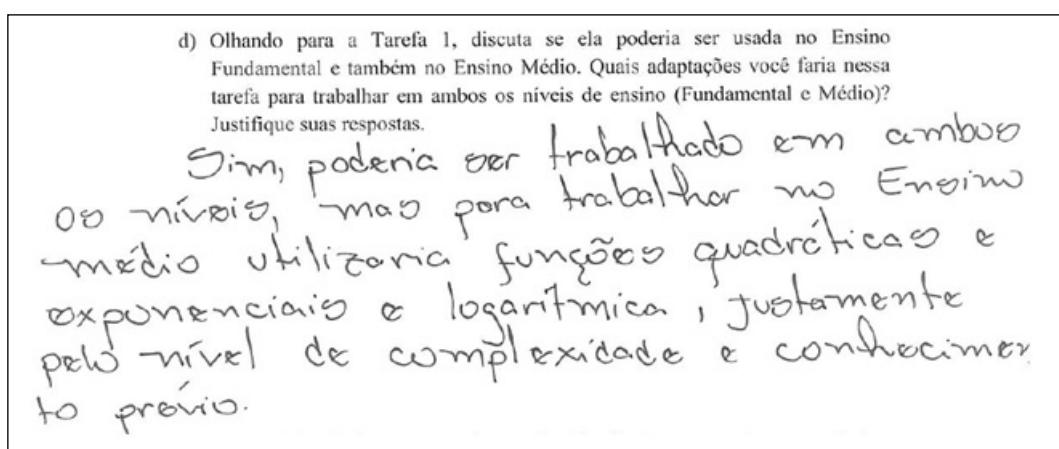 d) Olhando para a Tarefa 1, discuta se ela poderia ser usada no Ensino
Fundamental e também no Ensino Médio. Quais adaptações você faria nessa
tarefa para trabalhar em ambos os níveis de ensino (Fundamental e Médio)?
Justifique suas respostas.
Sim, poderia ser trabalhado em ambos
os níveis, mas para trabalhar no Ensino
médio utilizaria funções quadráticas e
exponenciais e logarítmica, justamente
pelo nível de complexidade e conhecimen
to prévio.